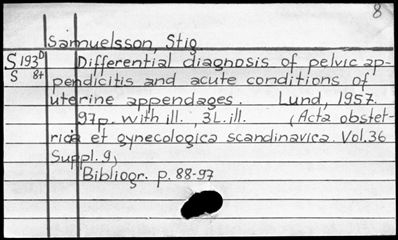 8
Samuelsson, Stig
S 193D Differential diagnosis of pelvic ap-
S 8+ pendicitis and acute conditions of
uterine appendages. Lund, 1957.
97p. with ill. 3 L. ill. (Acta obstet-
rica et gynecologica scandinavica. Vol. 36
Suppl. 9)
Bibliogr. p. 88-97